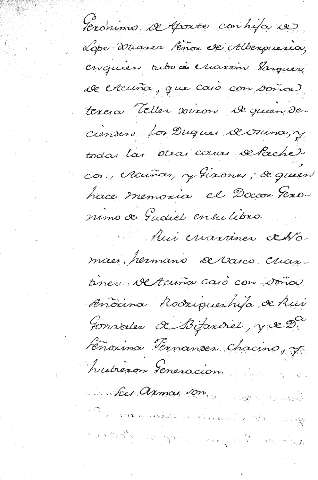 Geronimo de Aponte con hija de
Lope Suarez Señor de Albergueria,
en quien tubo a Martin Vazquez
de Acuña, que casó con Doña
teresa Tellez Xiron de quien de-
cienden los Duques de Osuna, y
todas las otras casas de Pache
cos, Acuñas, y Girones, de quien
hace memoria el Doctor Gero-
nimo de Gudiel en su libro.
Rui Martinez de No-
maes, hermano de Vasco Mar-
tinez de Acuña casó con Doña
Señorina Rodriguez hija de Rui
Gonzalez de y de D.ª
Señorina Fernandez Chacino, y
hubieron Generacion.
Sus Armas son.